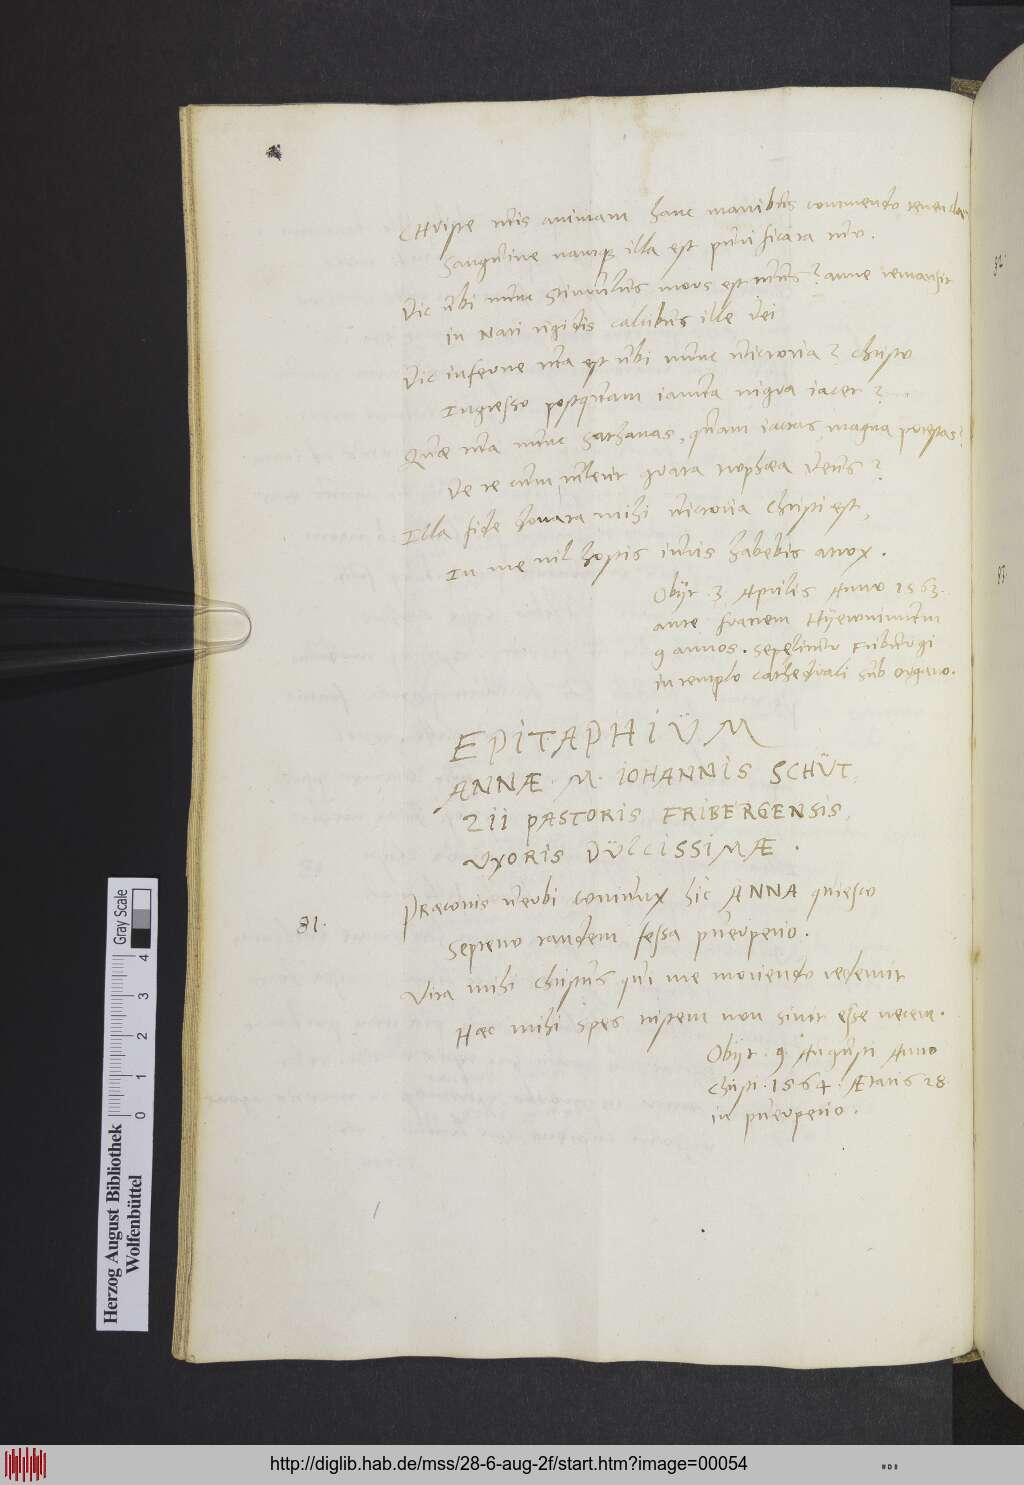 CHriste tuis animam hanc manibus commendo tenendam
Sanguine namq; illa est purificata tuo.
Dic ubi nunc stimulus mors est tuus? anne remansit
in Nati rigidis calcibus ille Dei
Dic inferne tua est ubi nunc victoria? Christo
Ingresso postquam ianua nigra iacet?
Quæ tua nunc Sathanas, quam iactas, magna potestas?
De te cum tulerit grata trophæa Deus?
Illa fide donata mihi victoria Christi est,
In me nil hostis iuris habebis atrox.
Obijt 3 Aprilis Anno 1563.
ante fratrem Hÿeronimum
9 annos. sepelitur Friburgi
in templo cathedrali sub organo.
EPITAPHIUM
ANNÆ M. IOHANNIS SCHÜT
ZII PASTORIS FRIBERGENSIS
UXORIS DULCISSIMÆ.
81.
PRæconis verbi coniunx hic ANNA quiesco
Septeno tandem fessa puerperio.
Vita mihi Christus qui me moriendo redemit
Hæc mihi spes tristem non sinit esse necem.
Obijt 9 Augusti Anno
Christi 1564. Ætatis 28
in puerperio.
82.
83
Herzog August Bibliothek
Wolfenbüttel
Gray Scale
0 1 2 3 4
http://diglib.hab.de/mss/28-6-aug-2f/start.htm?image=00054